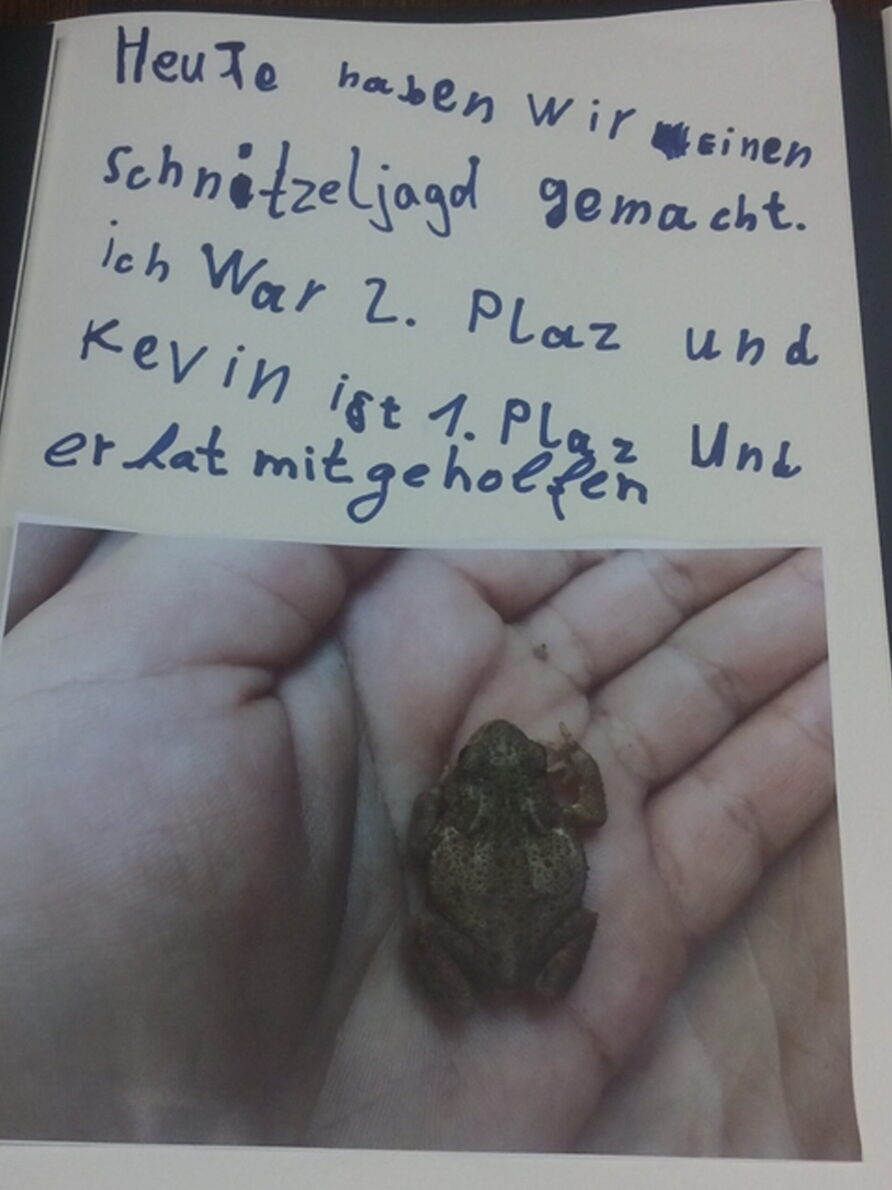 Heute haben wir einen
schnitzeljagd gemacht.
ich War 2. Plaz und
Kevin ist 1. Plaz Und
er hat mitgeholfen